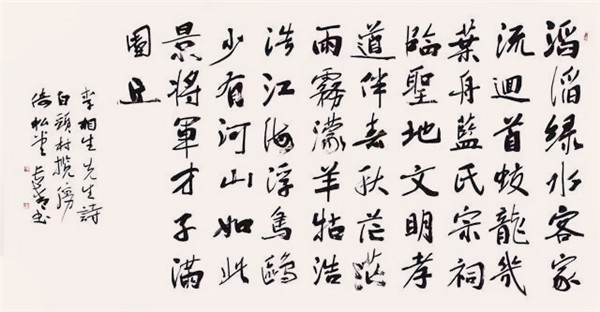 滔滔绿水客家
流迴首蛟龍幾
葉舟藍氏宗祠
臨聖地文明孝
道伴春秋茫茫
雨霧濛羊牯浩
浩江海浮鳥鷗
少有河山如此
景將軍才子滿
園丘
李相生先生詩
白頭村攬勝
倚松堂